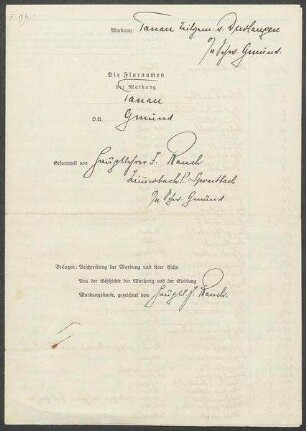 Markung: Tanau Teilgem. v. Durlangen
in Schw. Gmünd.
Die Flurnamen
der Markung
Tanau
O.A. Gmünd
Gesammelt von Hauptlehrer J. Rauch
Zimmerbach P. Spraitbach
in Schw. Gmünd
Beilagen: Beschreibung der Markung und ihrer Eschn
Aus der Geschichte der Markung und der Siedlung
Markungskarte, gezeichnet von Hauptl. J. Rauch.